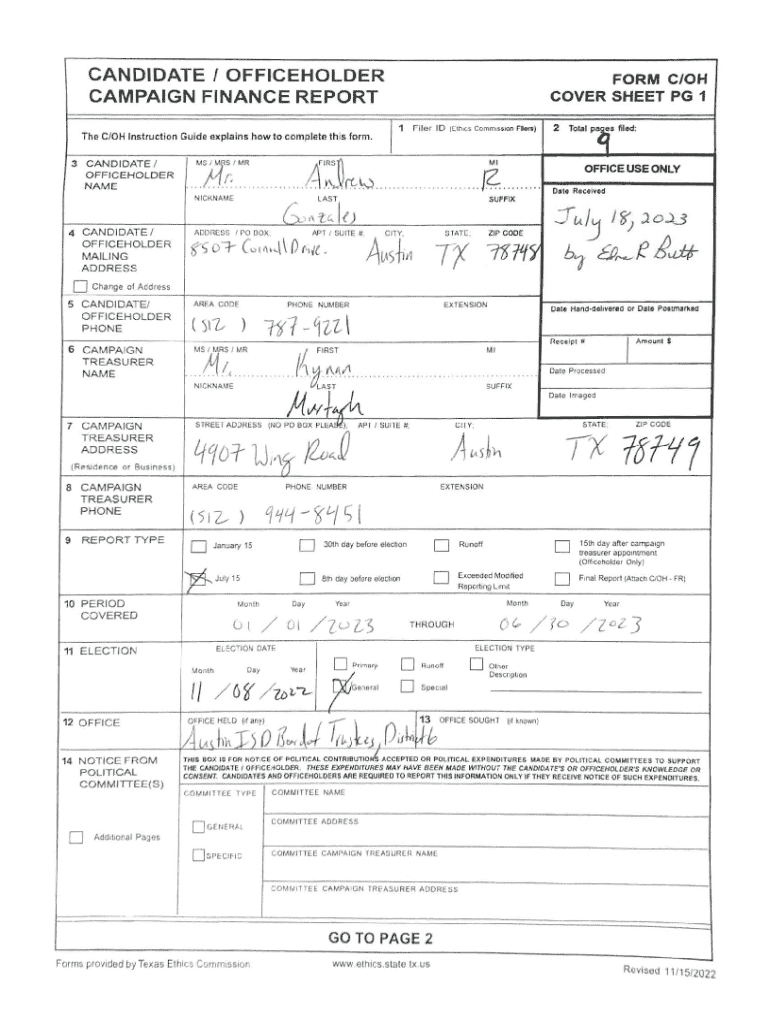 CANDIDATE / OFFICEHOLDER
CAMPAIGN FINANCE REPORT
FORM C/OH
COVER SHEET PG 1
The C/OH Instruction Guide explains how to complete this form.
1 Filer ID (Ethics Commission Filers)
2 Total pages filed:
9
3 CANDIDATE / OFFICEHOLDER NAME
MS / MRS / MR FIRST MI
Mr. Andrew R
NICKNAME LAST SUFFIX
Gonzales
OFFICE USE ONLY
Date Received
July 18, 2023
by Edna R Butts
4 CANDIDATE / OFFICEHOLDER MAILING ADDRESS
Change of Address
ADDRESS / PO BOX; APT / SUITE #; CITY; STATE; ZIP CODE
8507 Cornwall Drive. Austin TX 78748
5 CANDIDATE/ OFFICEHOLDER PHONE
AREA CODE PHONE NUMBER EXTENSION
(512 ) 787-9221
Date Hand-delivered or Date Postmarked
Receipt # Amount $
Date Processed
Date Imaged
6 CAMPAIGN TREASURER NAME
MS / MRS / MR FIRST MI
Mr. Kynan
NICKNAME LAST SUFFIX
Murtagh
7 CAMPAIGN TREASURER ADDRESS
(Residence or Business)
STREET ADDRESS (NO PO BOX PLEASE); APT / SUITE #; CITY; STATE; ZIP CODE
4907 Wing Road Austin TX 78749
8 CAMPAIGN TREASURER PHONE
AREA CODE PHONE NUMBER EXTENSION
(512 ) 944-8451
9 REPORT TYPE
January 15 30th day before election Runoff 15th day after campaign treasurer appointment (Officeholder Only)
July 15 8th day before election Exceeded Modified Reporting Limit Final Report (Attach C/OH - FR)
10 PERIOD COVERED
Month Day Year Month Day Year
01 / 01 / 2023 THROUGH 06 / 30 / 2023
11 ELECTION
ELECTION DATE ELECTION TYPE
Month Day Year
11 / 08 / 2022
Primary Runoff Other Description
General Special
12 OFFICE
OFFICE HELD (if any)
Austin ISD Board of Trustees, District 6
13 OFFICE SOUGHT (if known)
14 NOTICE FROM POLITICAL COMMITTEE(S)
Additional Pages
THIS BOX IS FOR NOTICE OF POLITICAL CONTRIBUTIONS ACCEPTED OR POLITICAL EXPENDITURES MADE BY POLITICAL COMMITTEES TO SUPPORT
THE CANDIDATE / OFFICEHOLDER. THESE EXPENDITURES MAY HAVE BEEN MADE WITHOUT THE CANDIDATE'S OR OFFICEHOLDER'S KNOWLEDGE OR
CONSENT. CANDIDATES AND OFFICEHOLDERS ARE REQUIRED TO REPORT THIS INFORMATION ONLY IF THEY RECEIVE NOTICE OF SUCH EXPENDITURES.
COMMITTEE TYPE COMMITTEE NAME
GENERAL
SPECIFIC
COMMITTEE ADDRESS
COMMITTEE CAMPAIGN TREASURER NAME
COMMITTEE CAMPAIGN TREASURER ADDRESS
GO TO PAGE 2
Forms provided by Texas Ethics Commission www.ethics.state.tx.us Revised 11/15/2022